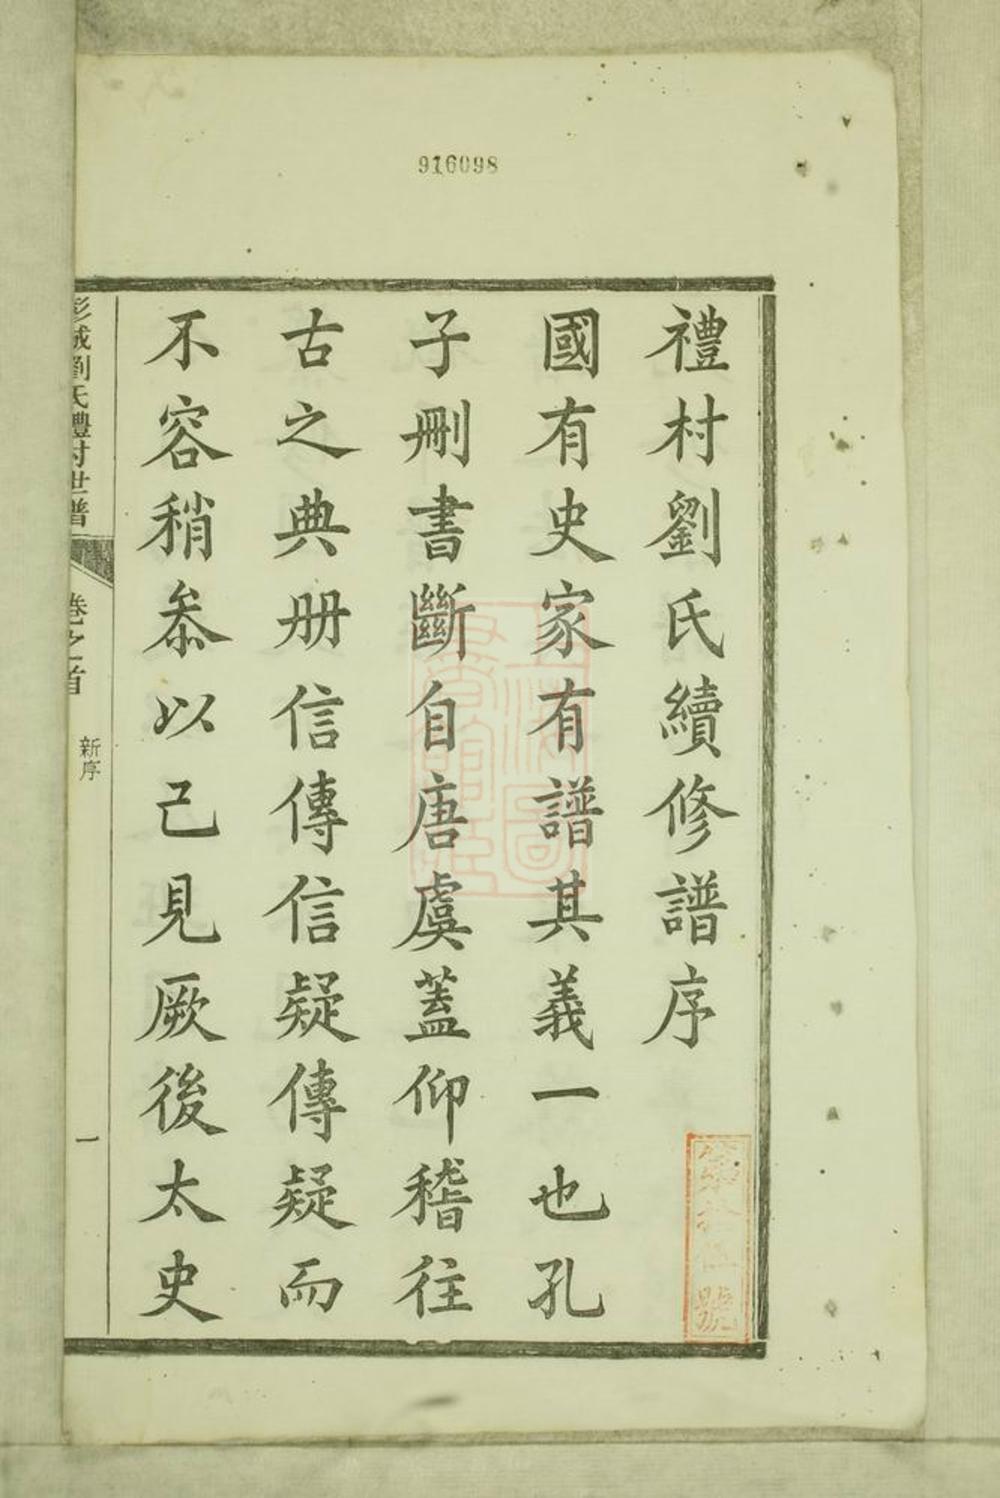 916098
禮村劉氏續修譜序
國有史家有譜其義一也孔
子刪書斷自唐虞蓋仰稽往
古之典册信傳信疑傳疑而
不容稍叅以己見厥後太史
彭城劉氏禮村世譜
卷之首
新序
一
號